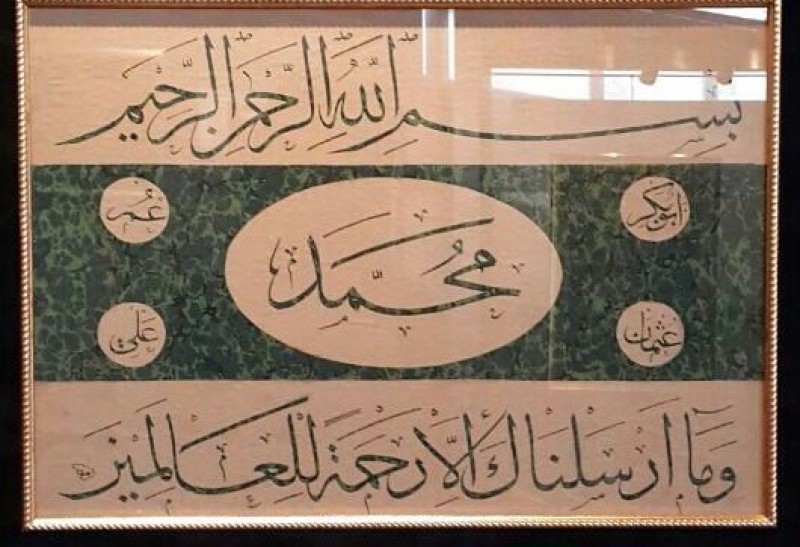 بِسْمِ اللّٰهِ الرَّحْمٰنِ الرَّحِيْمِ
ابوبكر
عُمَر
مُحَمَّد
عثمان
عَلي
وَمَا اَرْسَلْنَاكَ اِلَّا رَحْمَةً لِلْعَالَمِينَ